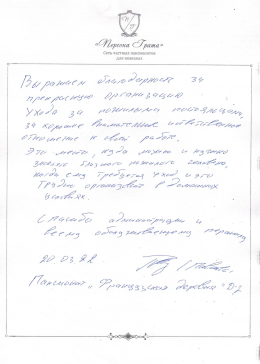 «Персона Гранта»
Сеть частных пансионатов
для пожилых
Выражаем благодарность за
прекрасную организацию
ухода за пожилыми постояльцами,
за хорошее внимательное и ответственное
отношение к своей работе.
Это место, куда можно и нужно
близкого пожилого человека,
когда ему требуется уход и это
трудно организовать в домашних
условиях.
Спасибо администрации и
всему обслуживающему персоналу
20.03.22
Пансионат „Французская деревня"